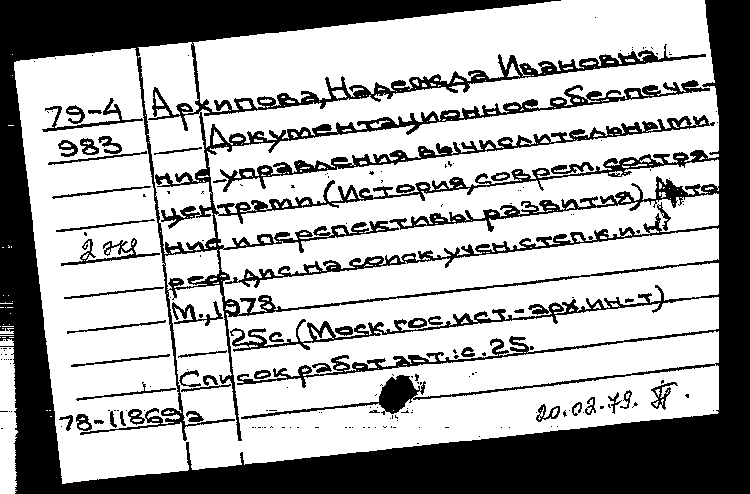 79-4 Архипова, Надежда Ивановна.
983 Документационное обеспече-
ние управления вычислительными
центрами. (История, соврем. состоя-
2 экз ние и перспективы развития). Авто
реф. дис. на соиск. учен. степ. к. и. н.
М., 1978.
25с. (Моск. гос. ист.-арх. ин-т).
Список работ авт.: с. 25.
78-11869а
20.02.79.